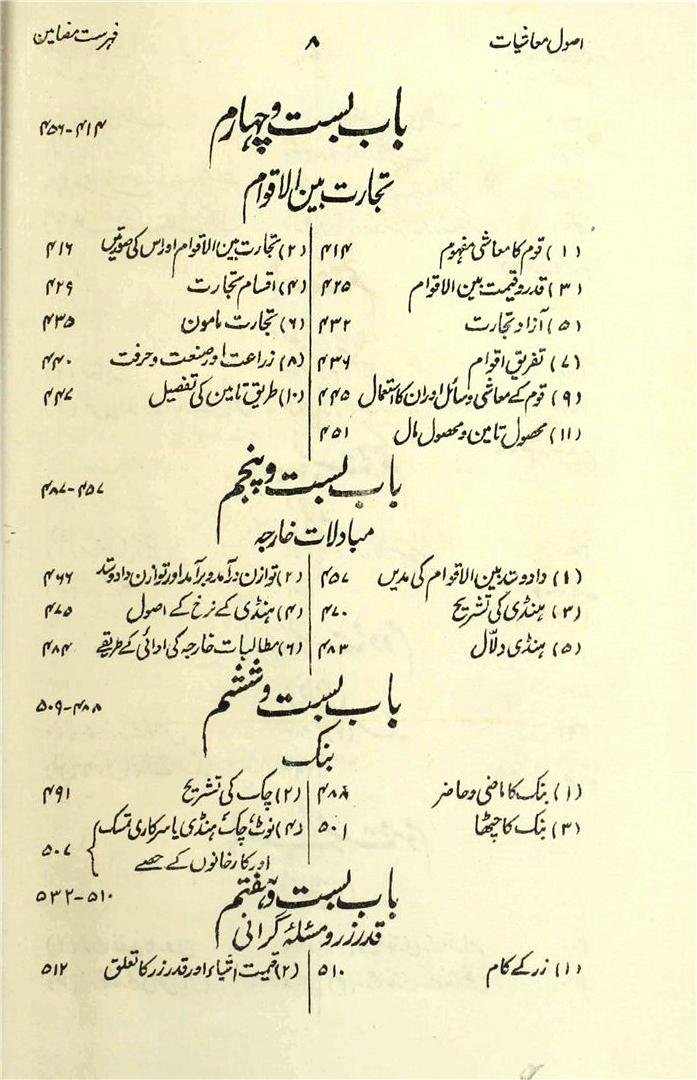 اصول معاشیات ۸ فہرست مضامین
باب بست و چہارم ۴۱۴-۴۵۶
تجارت بین الاقوام
(۱) قوم کا معاشی مفہوم ۴۱۴ (۲) تجارت بین الاقوام اور اس کی صورتیں ۴۱۶
(۳) قدر و قیمت بین الاقوام ۴۲۵ (۴) اقسام تجارت ۴۲۹
(۵) آزاد تجارت ۴۳۲ (۶) تجارت مامون ۴۳۵
(۷) تفریق اقوام ۴۳۶ (۸) زراعت اور صنعت و حرفت ۴۴۰
(۹) قوم کے معاشی وسائل اور ان کا استعمال ۴۴۵ (۱۰) طریق تامین کی تفصیل ۴۴۷
(۱۱) محصول تامین و محصول مال ۴۵۱
باب بست و پنجم ۴۵۷-۴۸۷
مبادلات خارجہ
(۱) داد و ستد بین الاقوام کی مدیں ۴۵۷ (۲) توازن درآمد و برآمد اور توازن داد و ستد ۴۶۶
(۳) ہنڈی کی تشریح ۴۷۰ (۴) ہنڈی کے نرخ کے اصول ۴۷۵
(۵) ہنڈی دلّال ۴۸۳ (۶) مطالبات خارجہ کی ادائی کے طریقے ۴۸۴
باب بست و ششم ۴۸۸-۵۰۹
بنک
(۱) بنک کا ماضی و حاضر ۴۸۸ (۲) چک کی تشریح ۴۹۱
(۳) بنک کا چٹھا ۵۰۱ (۴) نوٹ، چک، ہنڈی یا سرکاری تمسک
اور کارخانوں کے حصے ۵۰۷
باب بست و ہفتم ۵۱۰-۵۳۲
قدر زر و مسئلۂ گرانی
(۱) زر کے کام ۵۱۰ (۲) قیمت اشیاء اور قدر زر کا تعلق ۵۱۲